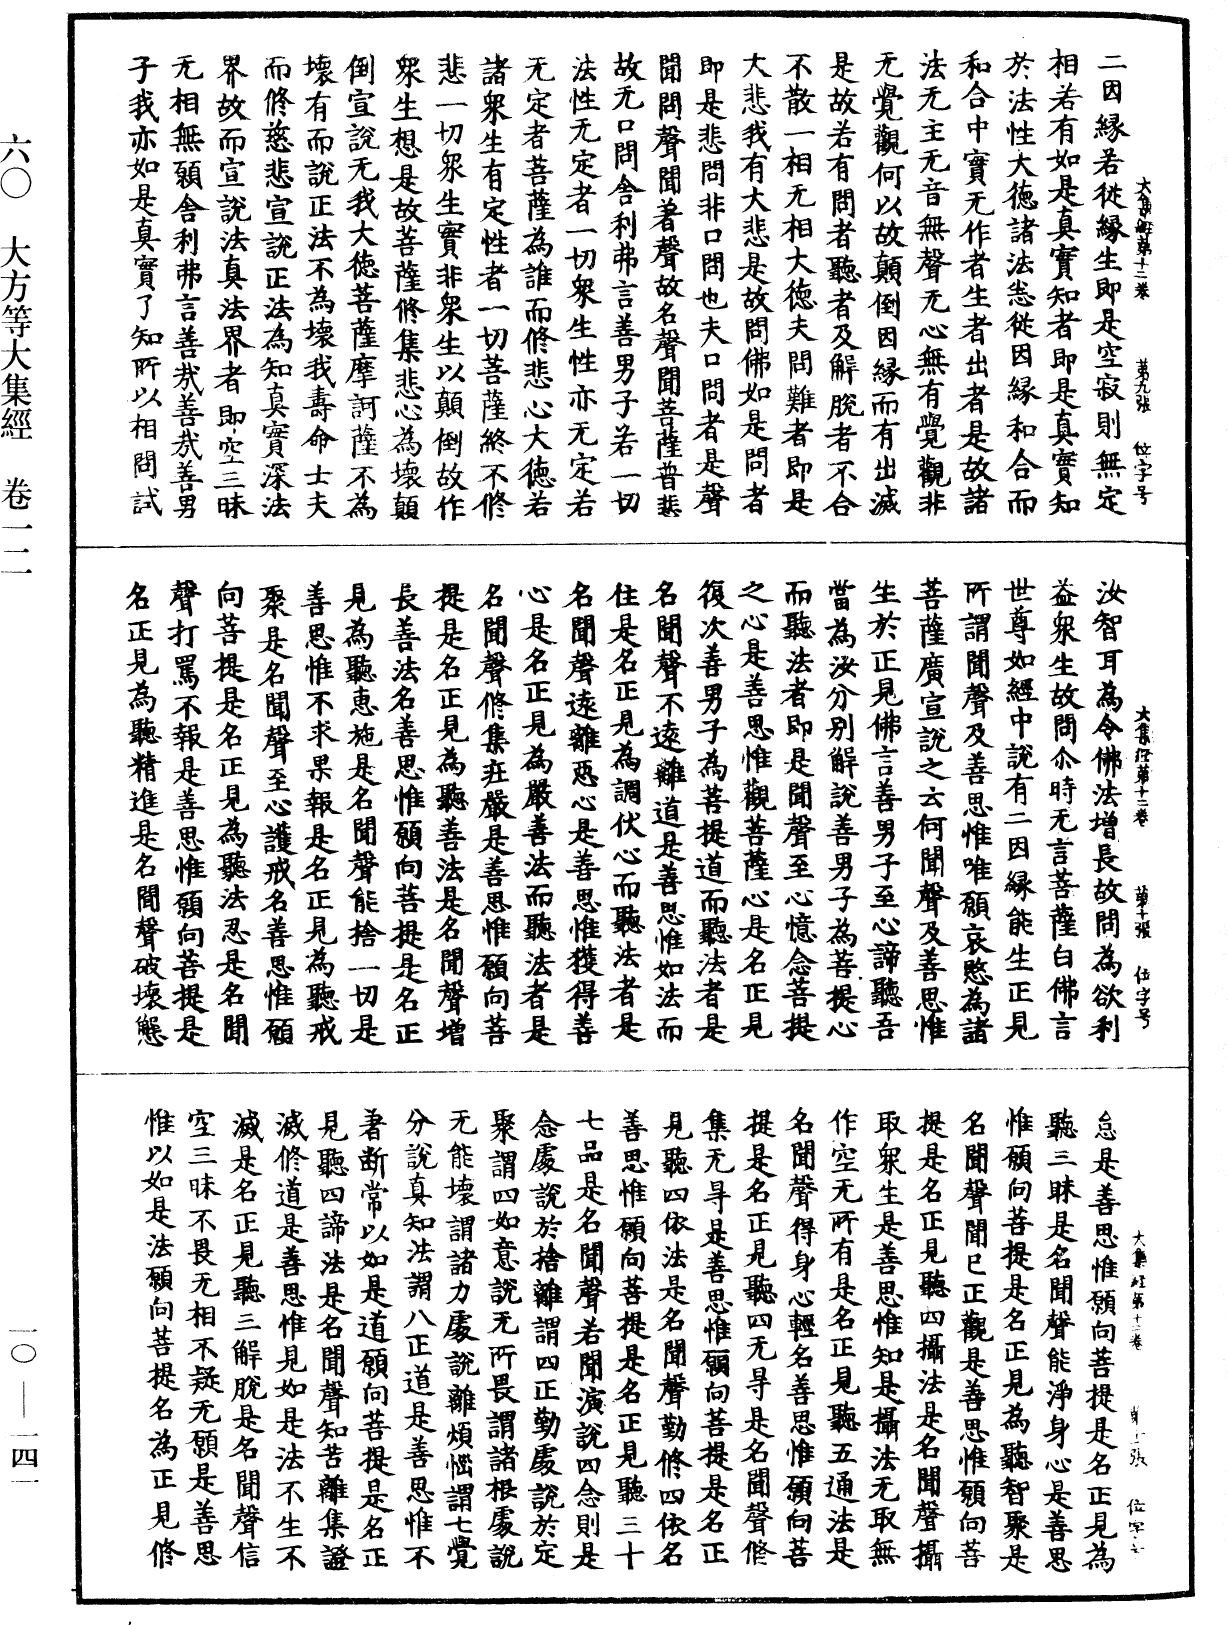 大集經第十二卷　第九張　位字号
二因縁若從縁生即是空寂則無定
相若有如是真實知者即是真實知
於法性大德諸法悉從因縁和合而
和合中實无作者生者出者是故諸
法无主无音無聲无心無有覺觀非
无覺觀何以故顛倒因縁而有出滅
是故若有問者聽者及解脫者不合
不散一相无相大德夫問難者即是
大悲我有大悲是故問佛如是問者
即是悲問非口問也夫口問者是聲
聞問聲聞著聲故名聲聞菩薩普悲
故无口問舍利弗言善男子若一切
法性无定者一切衆生性亦无定若
无定者菩薩為誰而修悲心大德若
諸衆生有定性者一切菩薩終不修
悲一切衆生實非衆生以顛倒故作
衆生想是故菩薩修集悲心為壞顛
倒宣說无我大德菩薩摩訶薩不為
壞有而說正法不為壞我壽命士夫
而修慈悲宣說正法為知真實深法
界故而宣說法真法界者即空三昧
无相無願舍利弗言善哉善哉善男
子我亦如是真實了知所以相問試
大集經第十二卷　第十張　位字号
汝智耳為令佛法增長故問為欲利
益衆生故問尒時无言菩薩白佛言
世尊如經中說有二因縁能生正見
所謂聞聲及善思惟唯願哀愍為諸
菩薩廣宣說之云何聞聲及善思惟
生於正見佛言善男子至心諦聽吾
當為汝分別解說善男子為菩提心
而聽法者即是聞聲至心憶念菩提
之心是善思惟觀菩薩心是名正見
復次善男子為菩提道而聽法者是
名聞聲不遠離道是善思惟如法而
住是名正見為調伏心而聽法者是
名聞聲遠離惡心是善思惟獲得善
心是名正見為嚴善法而聽法者是
名聞聲修集莊嚴是善思惟願向菩
提是名正見為聽善法是名聞聲增
長善法名善思惟願向菩提是名正
見為聽惠施是名聞聲能捨一切是
善思惟不求果報是名正見為聽戒
聚是名聞聲至心護戒名善思惟願
向菩提是名正見為聽法忍是名聞
聲打罵不報是善思惟願向菩提是
名正見為聽精進是名聞聲破壞懈
大集經第十二卷　第十一張　位字
怠是善思惟願向菩提是名正見為
聽三昧是名聞聲能淨身心是善思
惟願向菩提是名正見為聽智聚是
名聞聲聞已正觀是善思惟願向菩
提是名正見聽四攝法是名聞聲攝
取衆生是善思惟知是攝法无取無
作空无所有是名正見聽五通法是
名聞聲得身心輕名善思惟願向菩
提是名正見聽四无㝵是名聞聲修
集无㝵是善思惟願向菩提是名正
見聽四依法是名聞聲勤修四依名
善思惟願向菩提是名正見聽三十
七品是名聞聲若聞演說四念則是
念處說於捨離謂四正勤處說於定
聚謂四如意說无所畏謂諸根處說
无能壞謂諸力處說離煩惱謂七覺
分說真知法謂八正道是善思惟不
著斷常以如是道願向菩提是名正
見聽四諦法是名聞聲知苦離集證
滅修道是善思惟見如是法不生不
滅是名正見聽三解脫是名聞聲信
空三昧不畏无相不疑无願是善思
惟以如是法願向菩提名為正見修
六〇　大方等大集經　卷一二　一〇—一四一